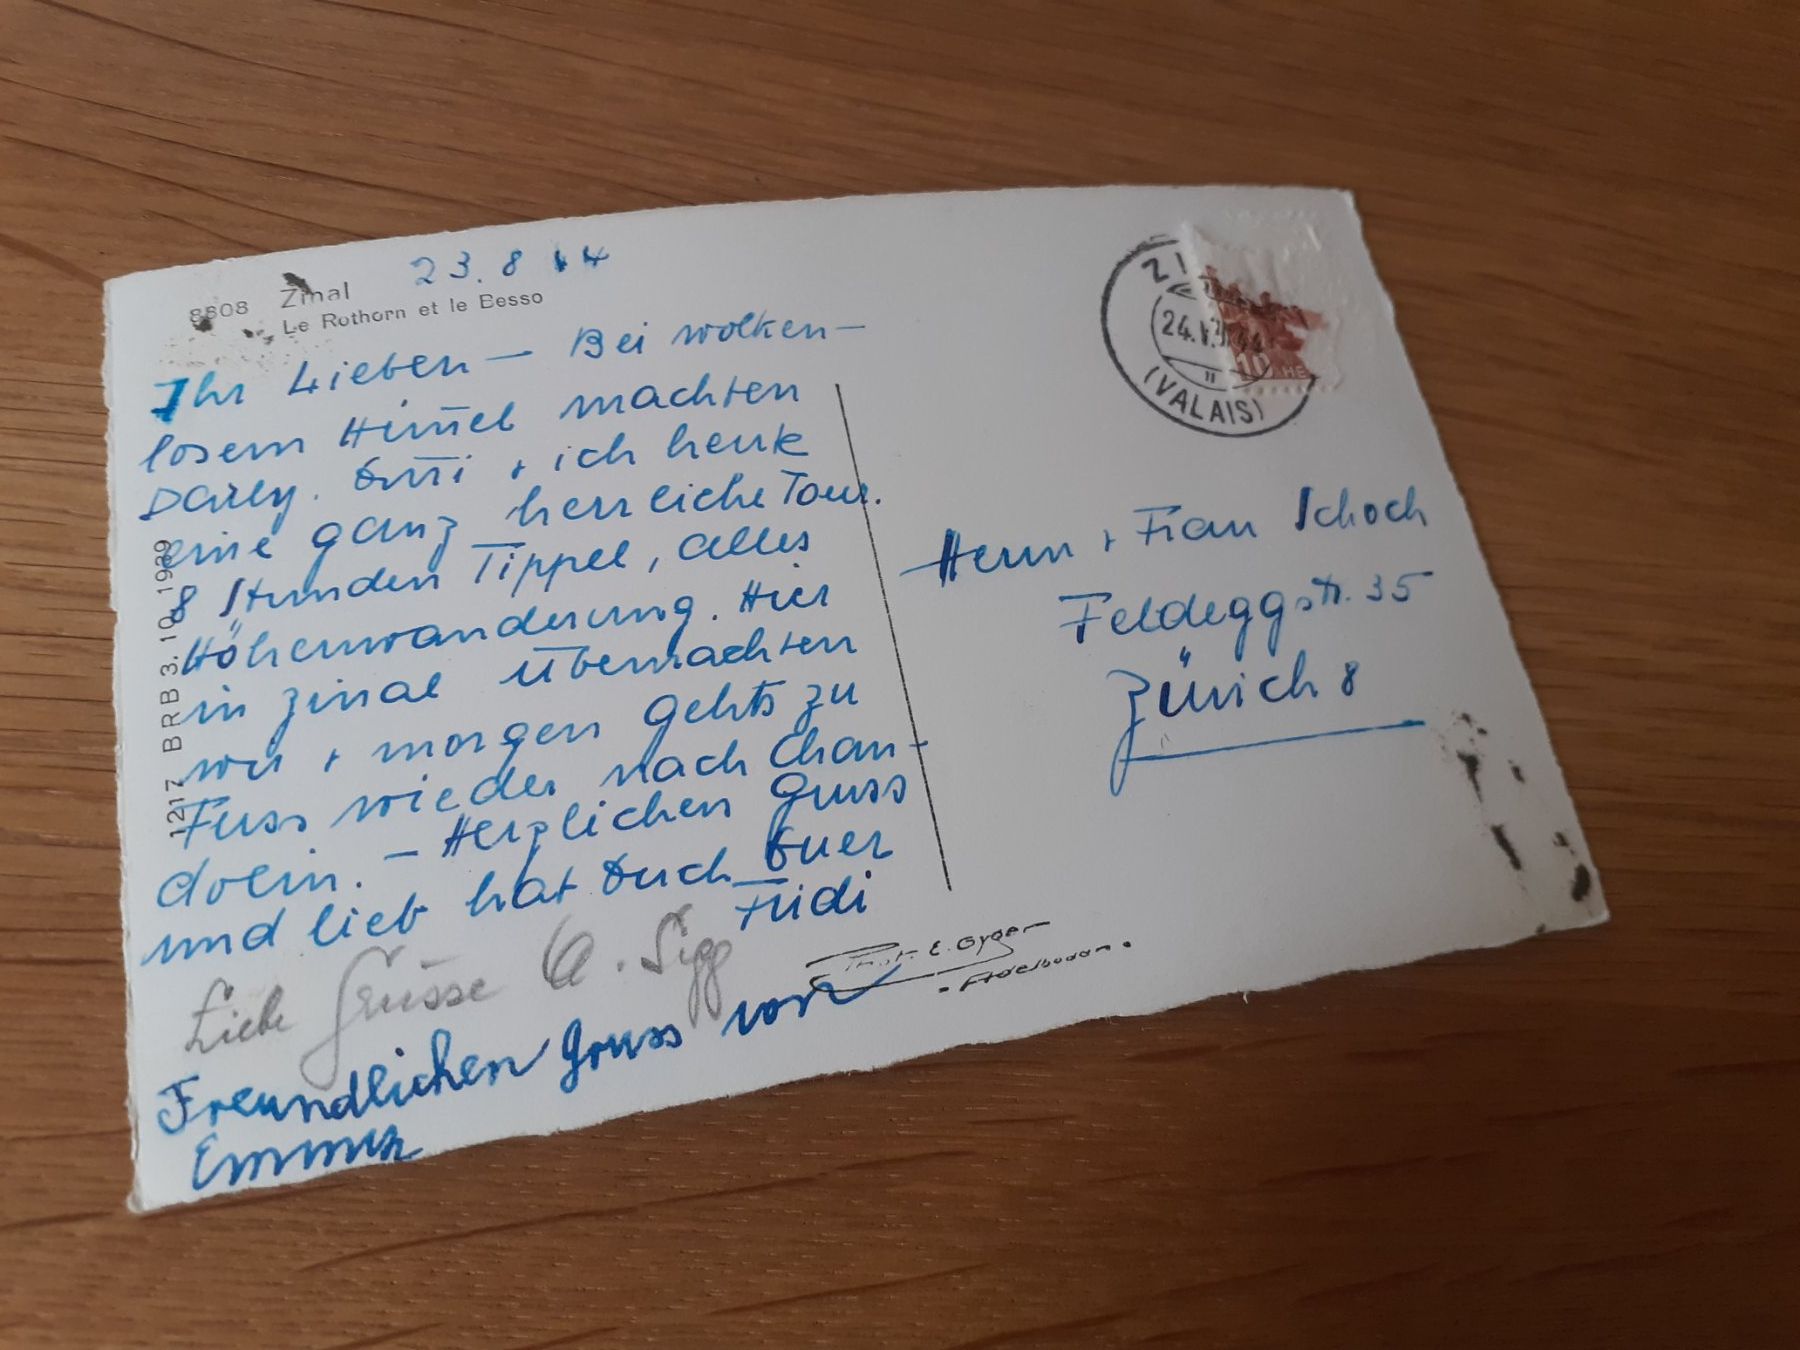 23.8 44
8808 Zinal
Le Rothorn et le Besso
Ihr Lieben — Bei wolken-
losem Himmel machten
Dälly. Emmi + ich heute
eine ganz herrliche Tour.
8 Stunden Tippel, alles
Höhenwanderung. Hier
in Zinal übernachten
wir + morgen gehts zu
Fuss wieder nach Chan-
dolin. — Herzlichen Gruss
und lieb hat Euch Euer
Fridi
Liebe Grüsse A. Sigg
Freundlichen Gruss von
Emma
1217 BRB 3. 10. 1939
Phot. E. Gyger
- Adelboden.
24.VIII.44
(VALAIS)
10
Herrn + Frau Schoch
Feldeggstr. 35
Zürich 8